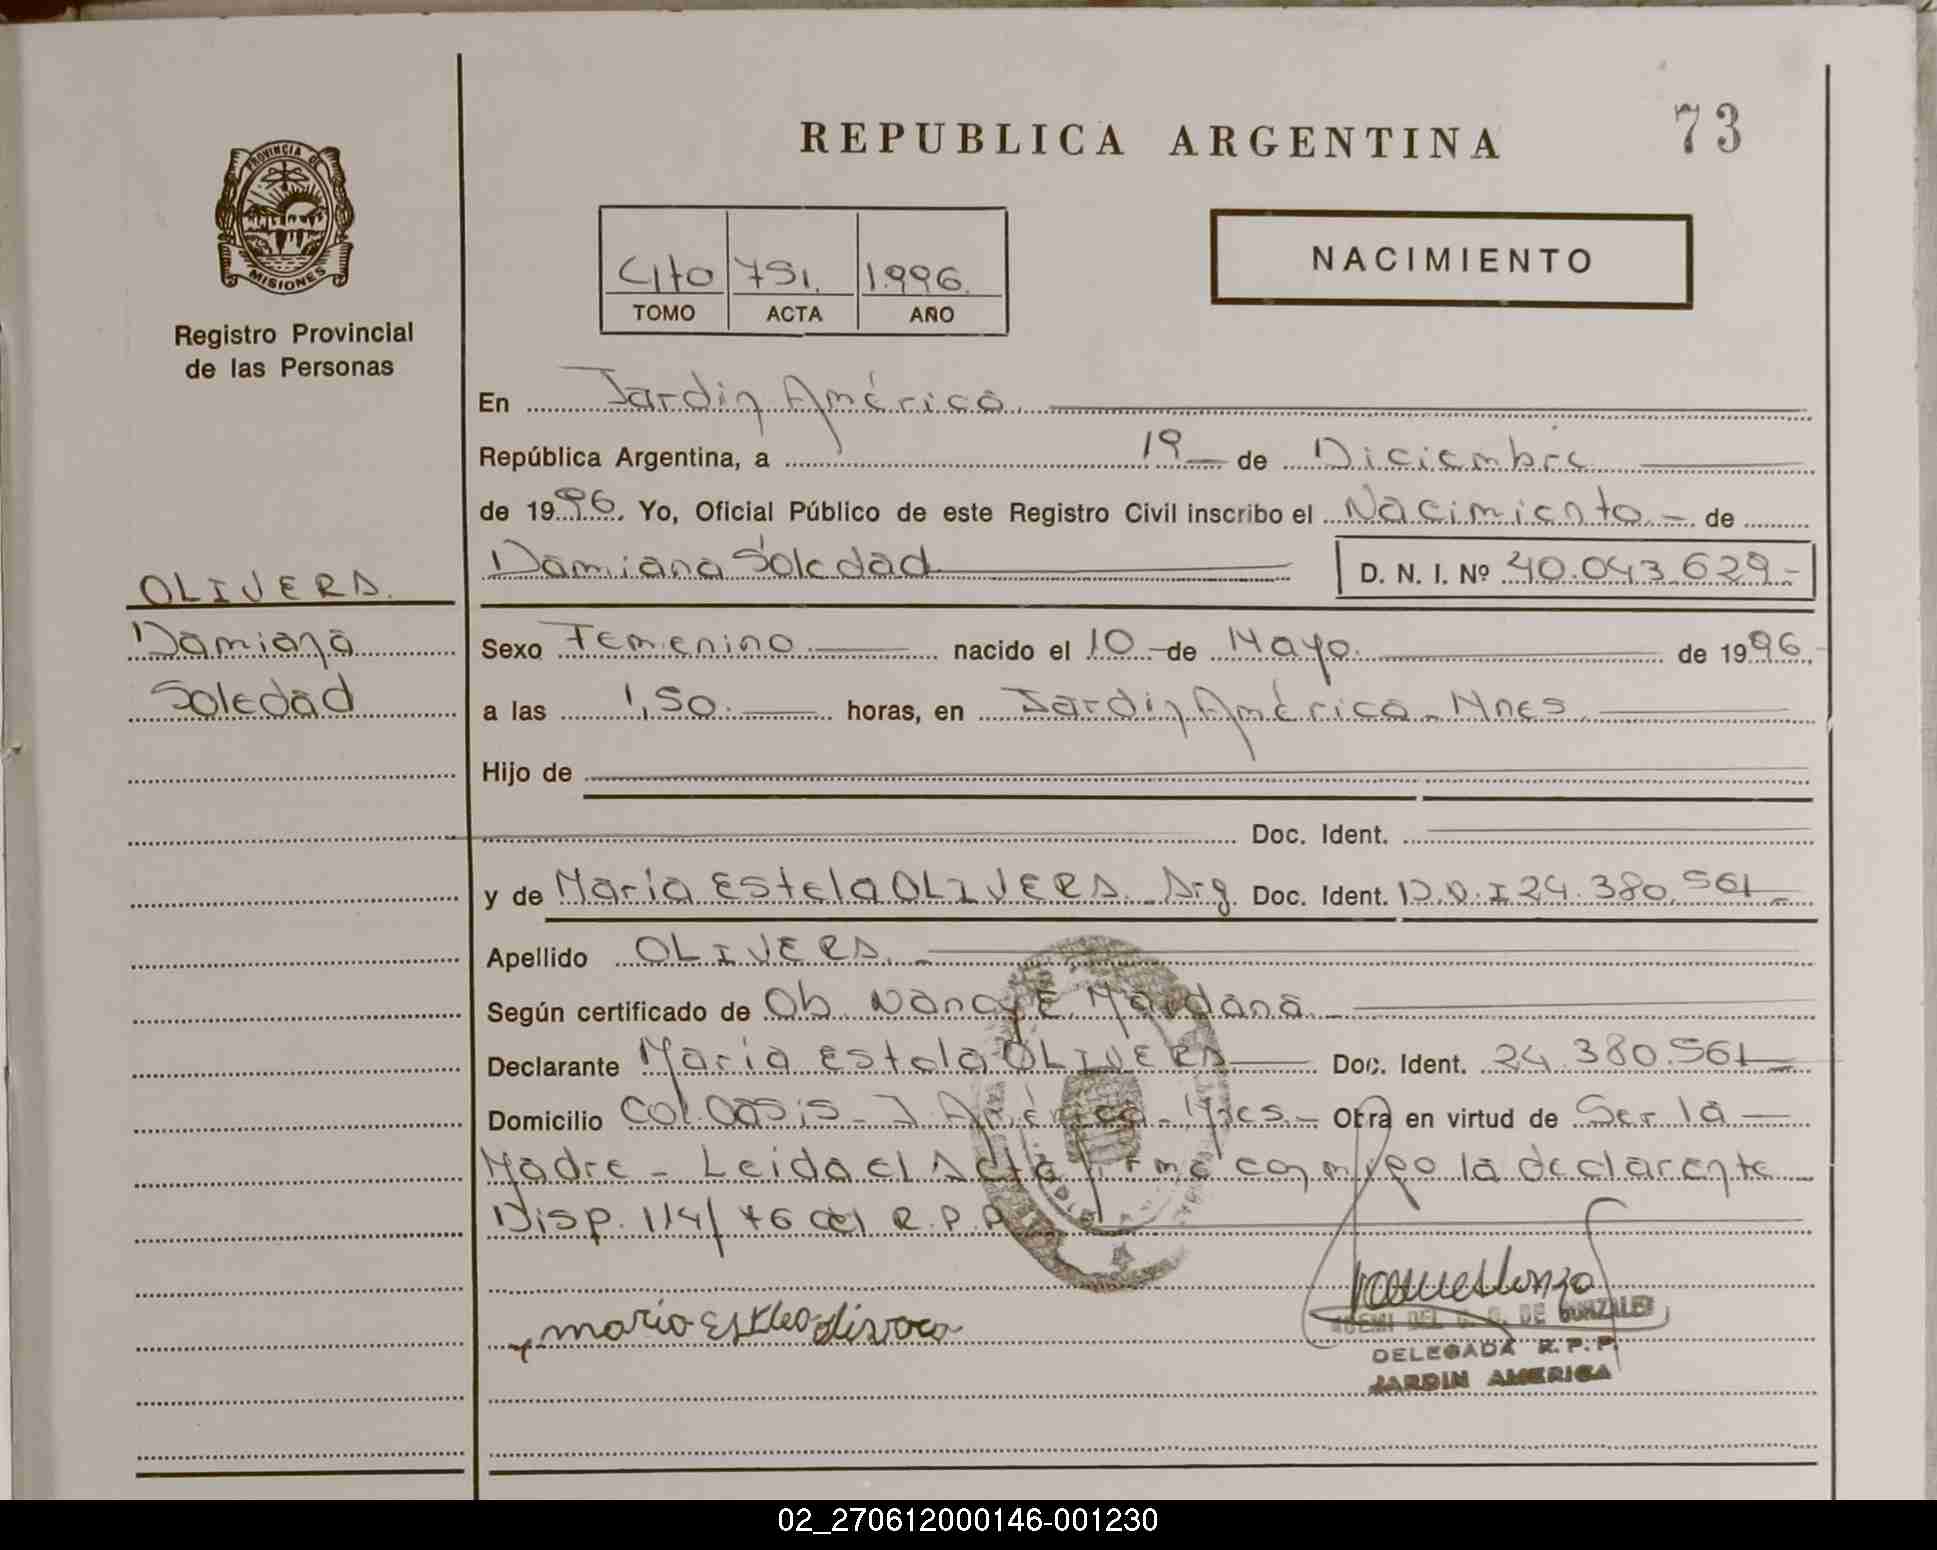 73
REPUBLICA ARGENTINA
PROVINCIA DE
MISIONES
Registro Provincial
de las Personas
4to 751. 1.996.
TOMO ACTA AÑO
NACIMIENTO
En Jardin América.
República Argentina, a 19 de Diciembre
de 1996. Yo, Oficial Público de este Registro Civil inscribo el Nacimiento - de
Damiana Soledad D. N. I. Nº 40.043.629-
OLIVERA.
Damiana
Soledad
Sexo Femenino nacido el 10 - de Mayo. de 1996.
a las 1,50. horas, en Jardin América - Mnes
Hijo de
Doc. Ident.
y de Maria Estela OLIVERA. Arg. Doc. Ident. D.N.I 24.380.561
Apellido OLIVERA. -
Según certificado de Ob. Nancy E. Maidana. -
Declarante Maria Estela OLIVERA Doc. Ident. 24.380.561
Domicilio Col. Oasis - J América - Mnes. - Obra en virtud de Ser la
Madre - Leida el Acta firma conmigo la declarante
Disp. 114/76 del R.P.P
maria Estela olivera
DE GONZALEZ
DELEGADA R.P.P.
JARDIN AMERICA
02_270612000146-001230